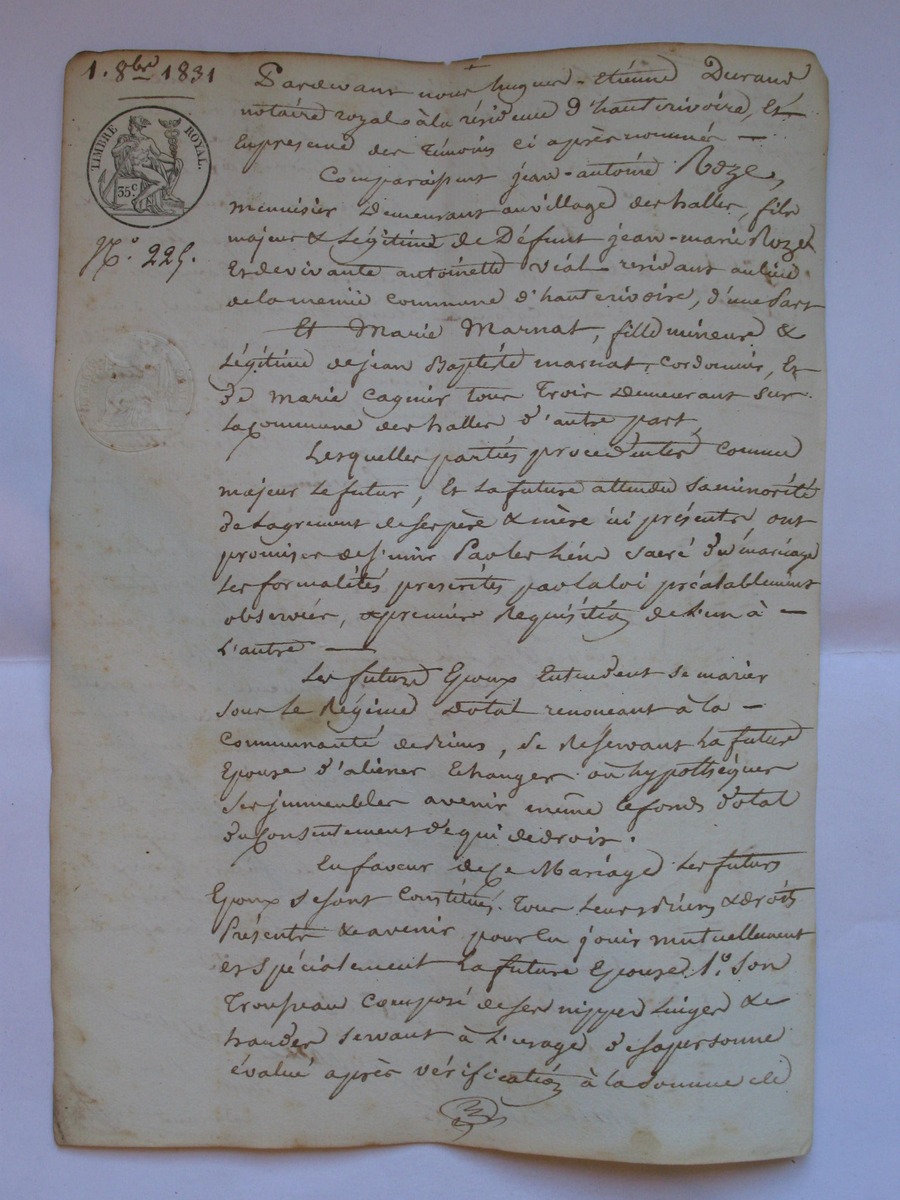 1. 8bre 1831
TIMBRE ROYAL.
35c
No. 225.
Pardevant nous hugues-Etienne Durand
notaire royal à la résidence d'hauterivoire, Et
En presence des Témoins ci après nommés —
Comparaissent jean-antoine Roze,
menuisier Demeurant au village des halles, fils
majeur & Légitime de Défunt jean-marie Roze
Et de vivante antoinette Vial residant au lieu
de la même Commune d'hauterivoire, d'une Part
Et Marie Marnat, fille mineure &
Légitime de jean Baptiste marnat, Cordonnier, Et
de Marie Cagnier tous Trois Demeurant Sur
La Commune des halles d'autre part,
Lesquelles parties procedentes Comme
majeur Le futur, Et La future attendu Sa minorité
de Lagrement de Ses père & mère ici présents, ont
promises de S'unir Par les liens Sacré du mariage
Les formalités prescrites par La Loi préalablement
observées, & première Requisition de L'un à —
L'autre —
Les futurs Epoux Entendent Se marier
Sous Le Régime Dotal renonceant à La —
Communauté de biens, Se Reservant La future
Epouse d'aliener Echanger où hypothéquer
Ses jmmeubles avenir même le fonds Dotal
du Consentement de qui de droit.
En faveur de Ce Mariage Les futurs
Epoux Se Sont Constitués Tous Leurs biens & droits
Présents & avenir pour En jouir mutuellement
et Spécialement La future Epouse 1o. Son
Trousseau Composé de Ses nippes Linges &
hardes Servant à L'usage de Sa personne
évalué après vérification à la Somme de